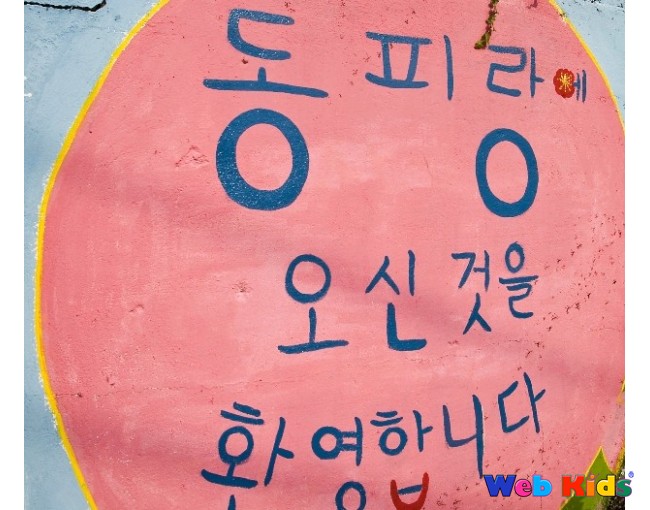 동피랑에
오신것을
환영합니다
Web Kids